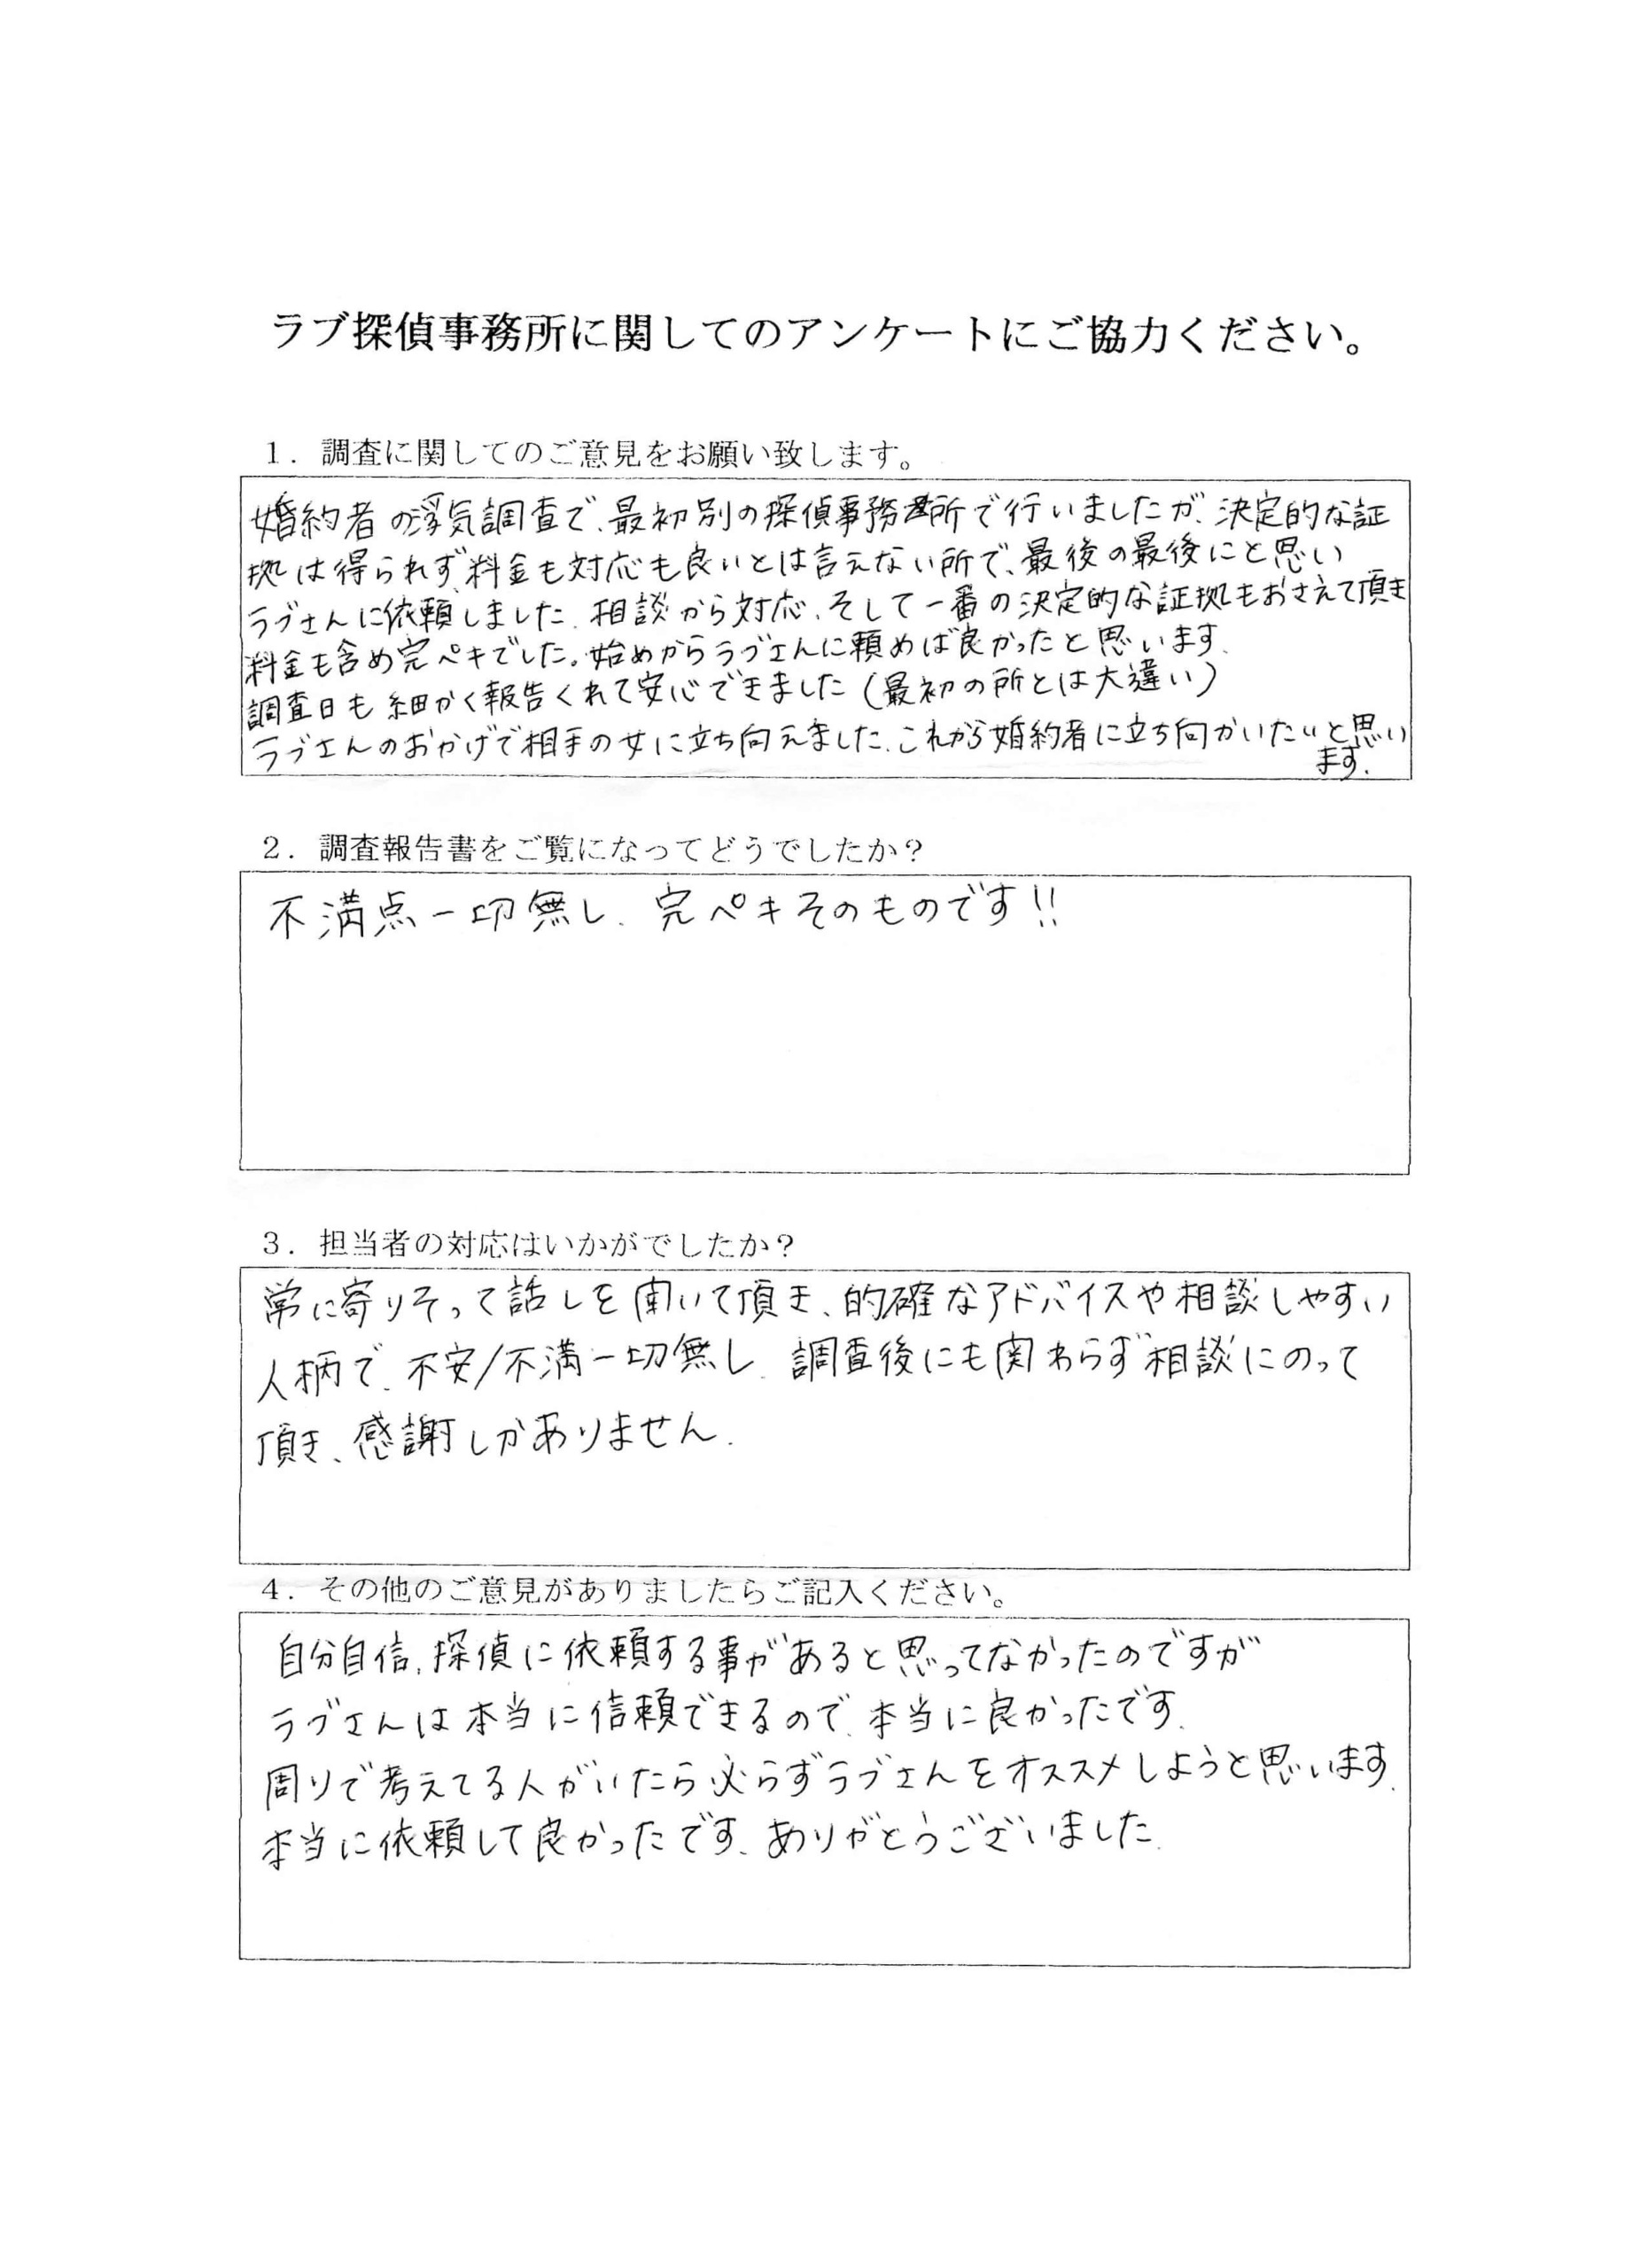 ラブ探偵事務所に関してのアンケートにご協力ください。
1. 調査に関してのご意見をお願い致します。
婚約者の浮気調査で、最初別の探偵事務所で行いましたが、決定的な証
拠は得られず、料金も対応も良いとは言えない所で、最後の最後にと思い
ラブさんに依頼しました、相談から対応、そして一番の決定的な証拠もおさえて頂き
料金も含め完ペキでした。始めからラブさんに頼めば良かったと思います、
調査日も細かく報告くれて安心できました(最初の所とは大違い)
ラブさんのおかげで相手の女に立ち向えました、これから婚約者に立ち向かいたいと思い
ます、
2. 調査報告書をご覧になってどうでしたか?
不満点一切無し、完ペキそのものです!!
3. 担当者の対応はいかがでしたか?
常に寄りそって話しを聞いて頂き、的確なアドバイスや相談しやすい
人柄で、不安/不満一切無し、調査後にも関わらず相談にのって
頂き、感謝しかありません、
4. その他のご意見がありましたらご記入ください。
自分自信、探偵に依頼する事があると思ってなかったのですが
ラブさんは本当に信頼できるので、本当に良かったです、
周りで考えてる人がいたら必らずラブさんをオススメしようと思います、
本当に依頼して良かったです、ありがとうございました、